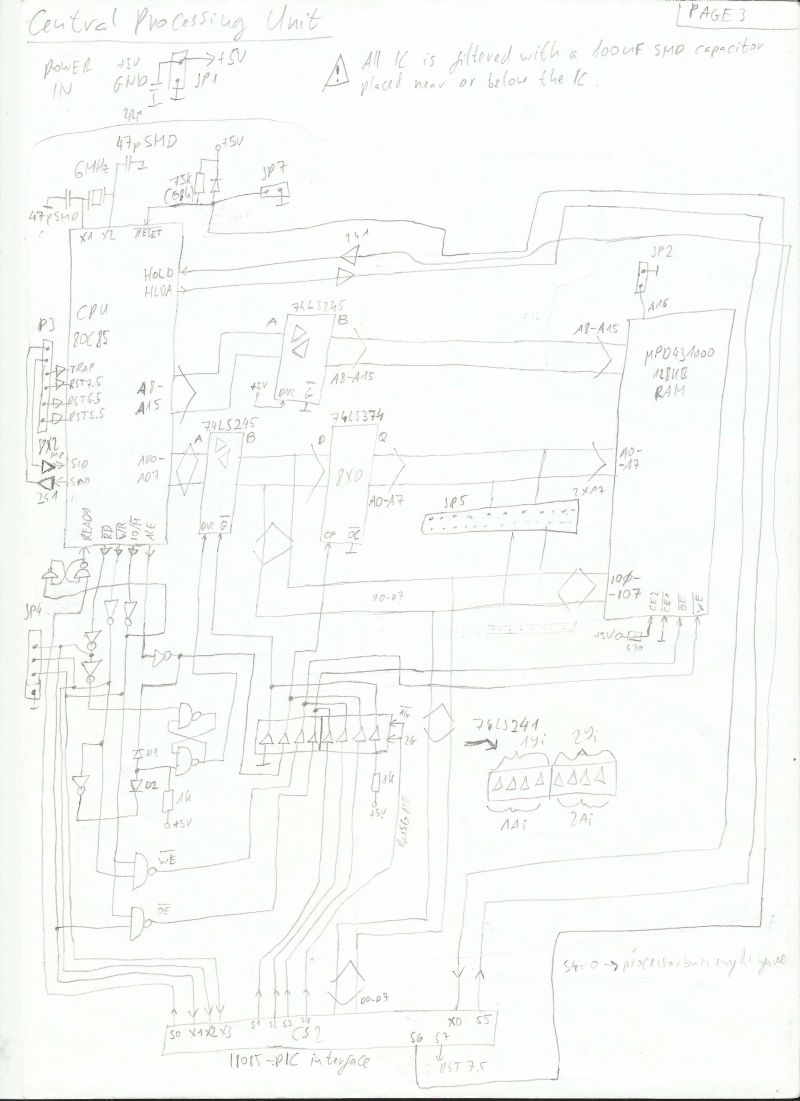 Central Processing Unit
PAGE 3
POWER IN
+5V
GND
JP1
+5V
All IC is filtered with a 100nF SMD capacitor
placed near or below the IC.
47p SMD
6MHz
47p SMD
75k
+5V
JP7
X1 X2 RESET
HOLD
HLDA
CPU
80C85
241
JP2
A16
74LS245
A B
A8-A15
DIR G
+5V
A8-A15
µPD431000
128KB
RAM
P3
TRAP
RST7.5
RST6.5
RST5.5
A8-
A15
8X2
SID
SOD
241
AD0-
107
74LS245
A B
DIR G
74LS374
D Q
8XD
CP OC
A0-A7
JP5
2x17
A0-
-A7
READY
RD
WR
IO/M
ALE
D0-D7
IO0-
-107
CE2
CE1
OE
WE
+5V
470
JP4
1G
2G
D1
D2
1k
+5V
1k
+5V
74LS241
1Yi 2Yi
1Ai 2Ai
WE
OE
D0-D7
S0 X1 X2 X3 S1 S2 S3 S4
CS2
X0 S5
S6 S7
RST 7.5